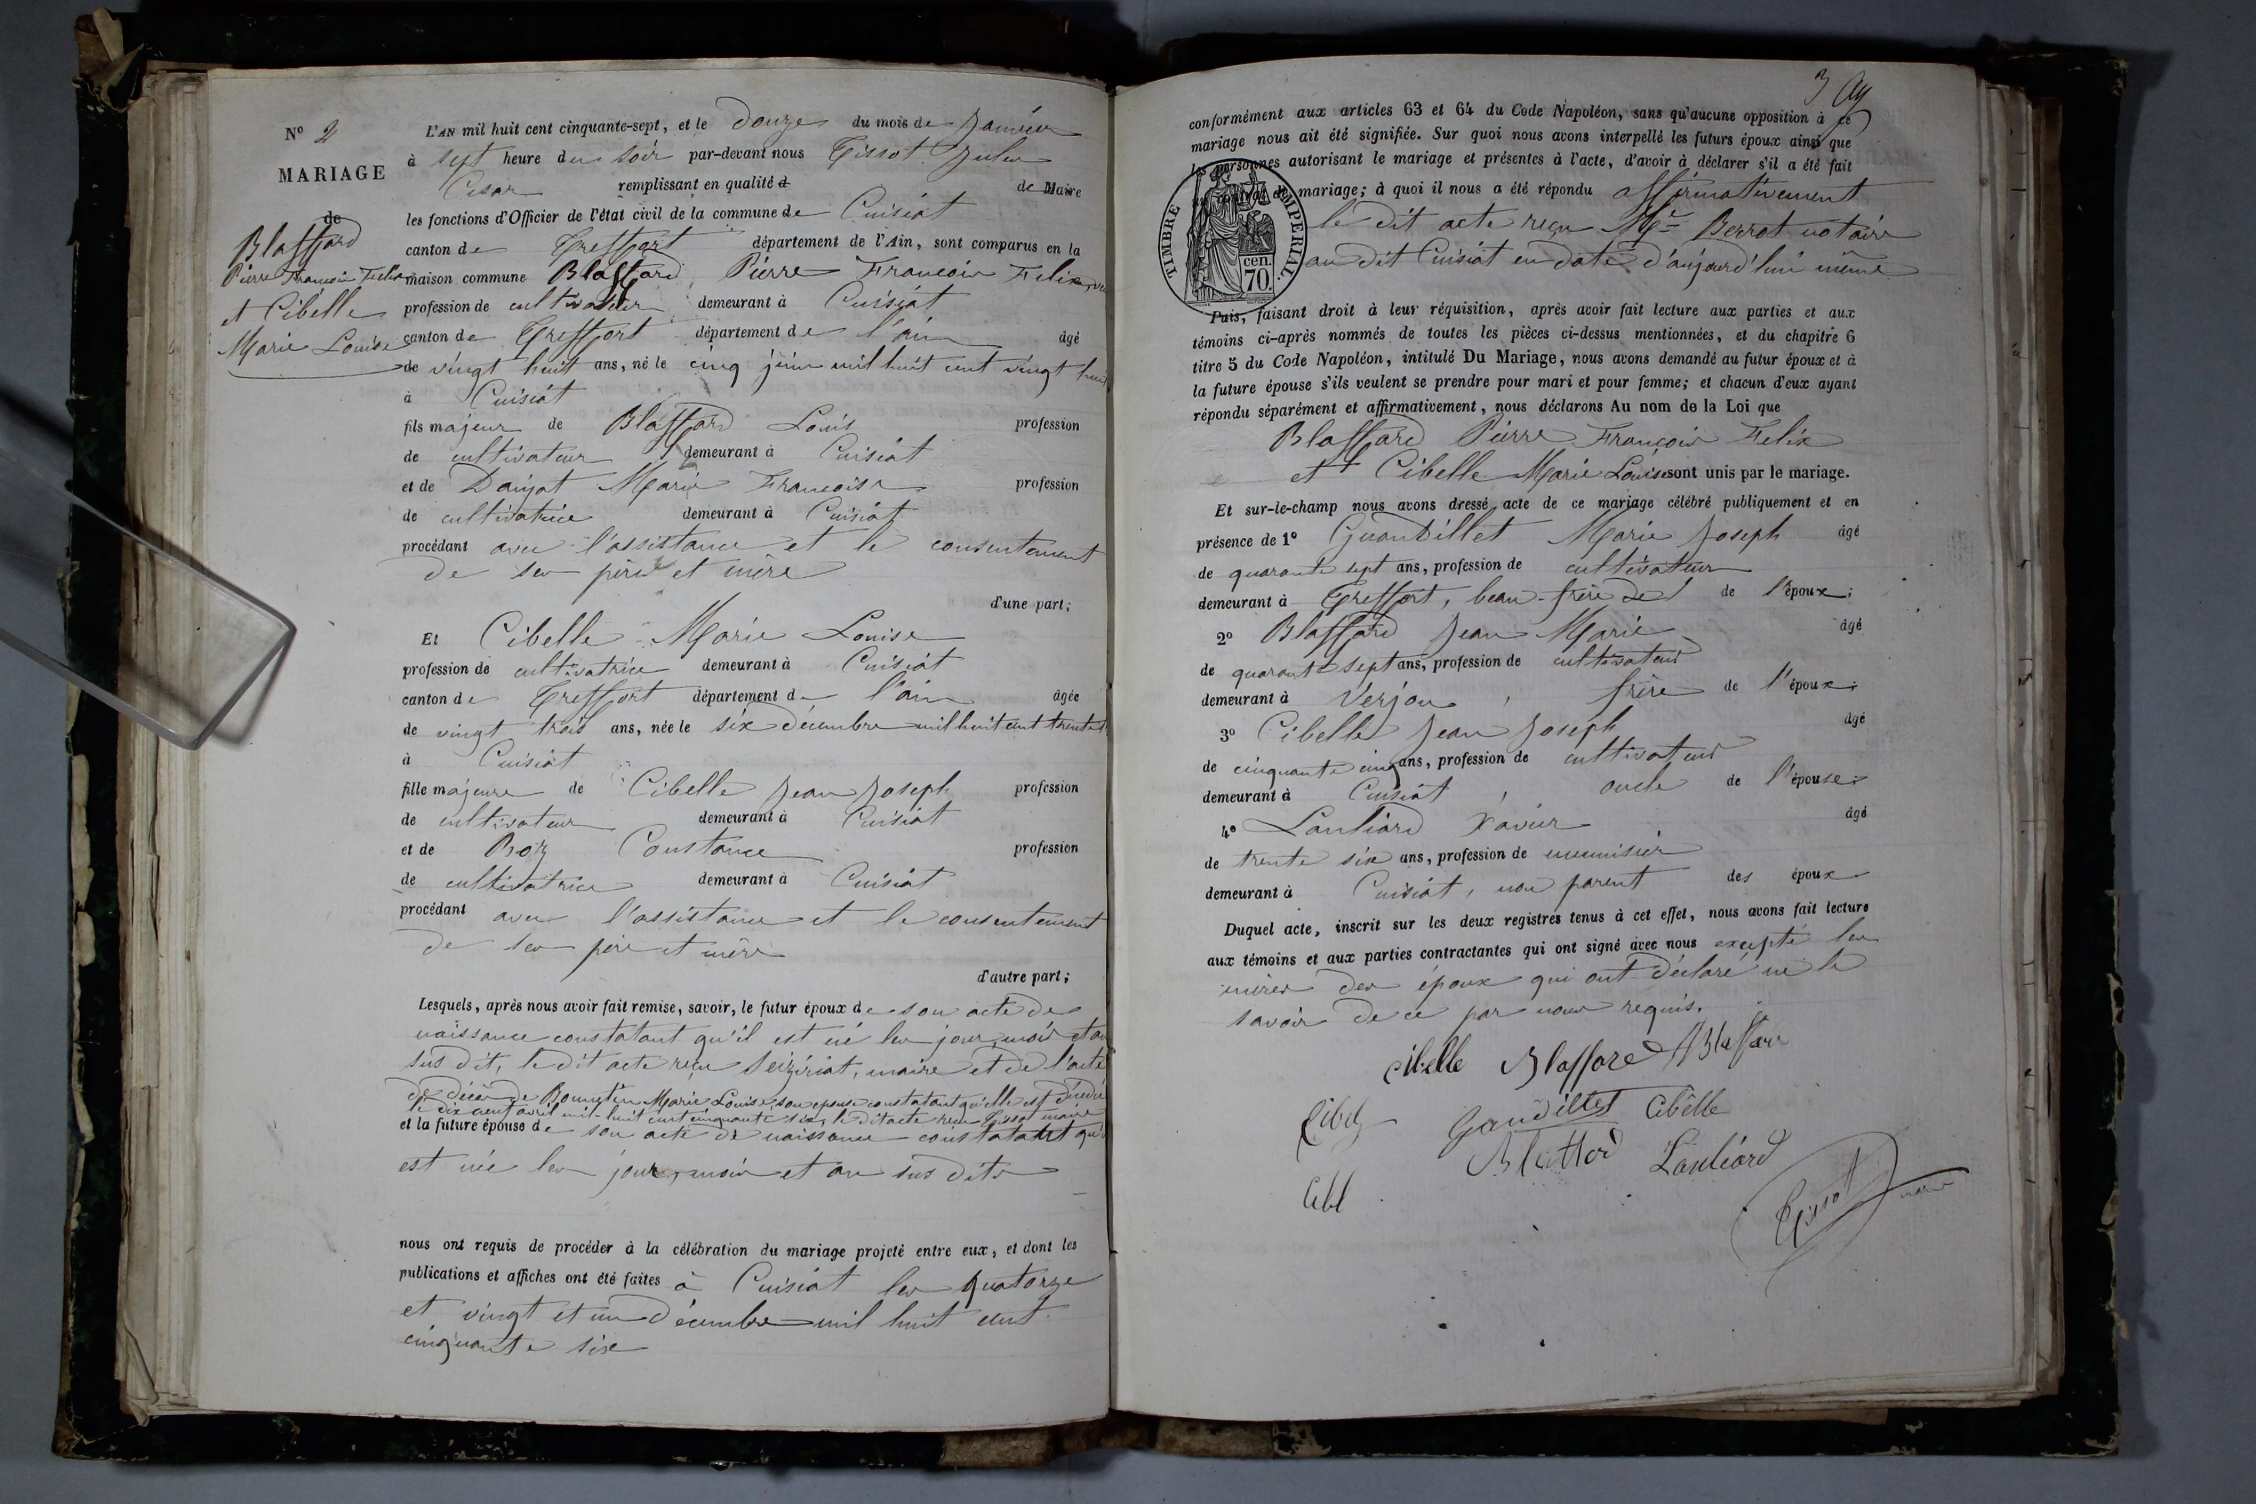 N° 2
MARIAGE
de
Blaffard
Pierre François Felix
et Cibelle
Marie Louise
L'AN mil huit cent cinquante-sept, et le douze du mois de Janvier
à sept heure du soir par-devant nous Tissot Jules
Cesar remplissant en qualité de Maire
les fonctions d'Officier de l'état civil de la commune de Cuisiat
canton de Treffort département de l'Ain, sont comparus en la
maison commune Blaffard Pierre François Felix
profession de cultivateur demeurant à Cuisiat
canton de Treffort département de l'ain âgé
de vingt huit ans, né le cinq juin mil huit cent vingt huit
à Cuisiat
fils majeur de Blaffard Louis profession
de cultivateur demeurant à Cuisiat
et de Marie Françoise profession
de cultivatrice demeurant à Cuisiat
procédant avec l'assistance et le consentement
de ses père et mère
d'une part;
Et Cibelle Marie Louise
profession de cultivatrice demeurant à Cuisiat
canton de Treffort département de l'ain âgée
de vingt trois ans, née le six décembre mil huit cent trente
à Cuisiat
fille majeure de Cibelle Jean Joseph profession
de cultivateur demeurant à Cuisiat
et de Roz Constance profession
de cultivatrice demeurant à Cuisiat
procédant avec l'assistance et le consentement
de ses père et mère
d'autre part;
Lesquels, après nous avoir fait remise, savoir, le futur époux de son acte de
naissance constatant qu'il est né les jour, mois et an
sus dit, le dit acte reçu Seizériat, maire et de l'acte
de décès de Marie Louise son epouse constatant qu'elle est décédée
le dix neuf avril mil huit cent cinquante six, le dit acte reçu Tissot maire
et la future épouse de son acte de naissance constatant qu'
est née les jour, mois et an sus dits
nous ont requis de procéder à la célébration du mariage projeté entre eux, et dont les
publications et affiches ont été faites à Cuisiat les quatorze
et vingt et un décembre mil huit cent
cinquante six
3
conformément aux articles 63 et 64 du Code Napoléon, sans qu'aucune opposition à ce
mariage nous ait été signifiée. Sur quoi nous avons interpellé les futurs époux ainsi que
les personnes autorisant le mariage et présentes à l'acte, d'avoir à déclarer s'il a été fait
de mariage; à quoi il nous a été répondu affirmativement
TIMBRE IMPERIAL.
cen.
70.
le dit acte reçu Me Berrot notaire
au dit Cuisiat en date d'aujourd'hui même
Puis, faisant droit à leur réquisition, après avoir fait lecture aux parties et aux
témoins ci-après nommés de toutes les pièces ci-dessus mentionnées, et du chapitre 6
titre 5 du Code Napoléon, intitulé Du Mariage, nous avons demandé au futur époux et à
la future épouse s'ils veulent se prendre pour mari et pour femme; et chacun d'eux ayant
répondu séparément et affirmativement, nous déclarons Au nom de la Loi que
Blaffard Pierre François Felix
et Cibelle Marie Louise sont unis par le mariage.
Et sur-le-champ nous avons dressé acte de ce mariage célébré publiquement et en
présence de 1° Guandillet Marie Joseph âgé
de quarante sept ans, profession de cultivateur
demeurant à Treffort, beau-frère de l'époux;
2° Blaffard Jean Marie âgé
de quarante sept ans, profession de cultivateur
demeurant à Verjon, frère de l'époux;
3° Cibelle Jean Joseph âgé
de cinquante cinq ans, profession de cultivateur
demeurant à Cuisiat, oncle de l'épouse;
4° Lanliard Xavier âgé
de trente six ans, profession de menuisier
demeurant à Cuisiat, non parent des époux
Duquel acte, inscrit sur les deux registres tenus à cet effet, nous avons fait lecture
aux témoins et aux parties contractantes qui ont signé avec nous excepté les
mères des époux qui ont déclaré ne le
savoir de ce par nous requis.
Cibelle Blaffard Blaffard
Cibel Gandillet Cibelle
Blaffard Lanliard
Cibl
Tissot maire